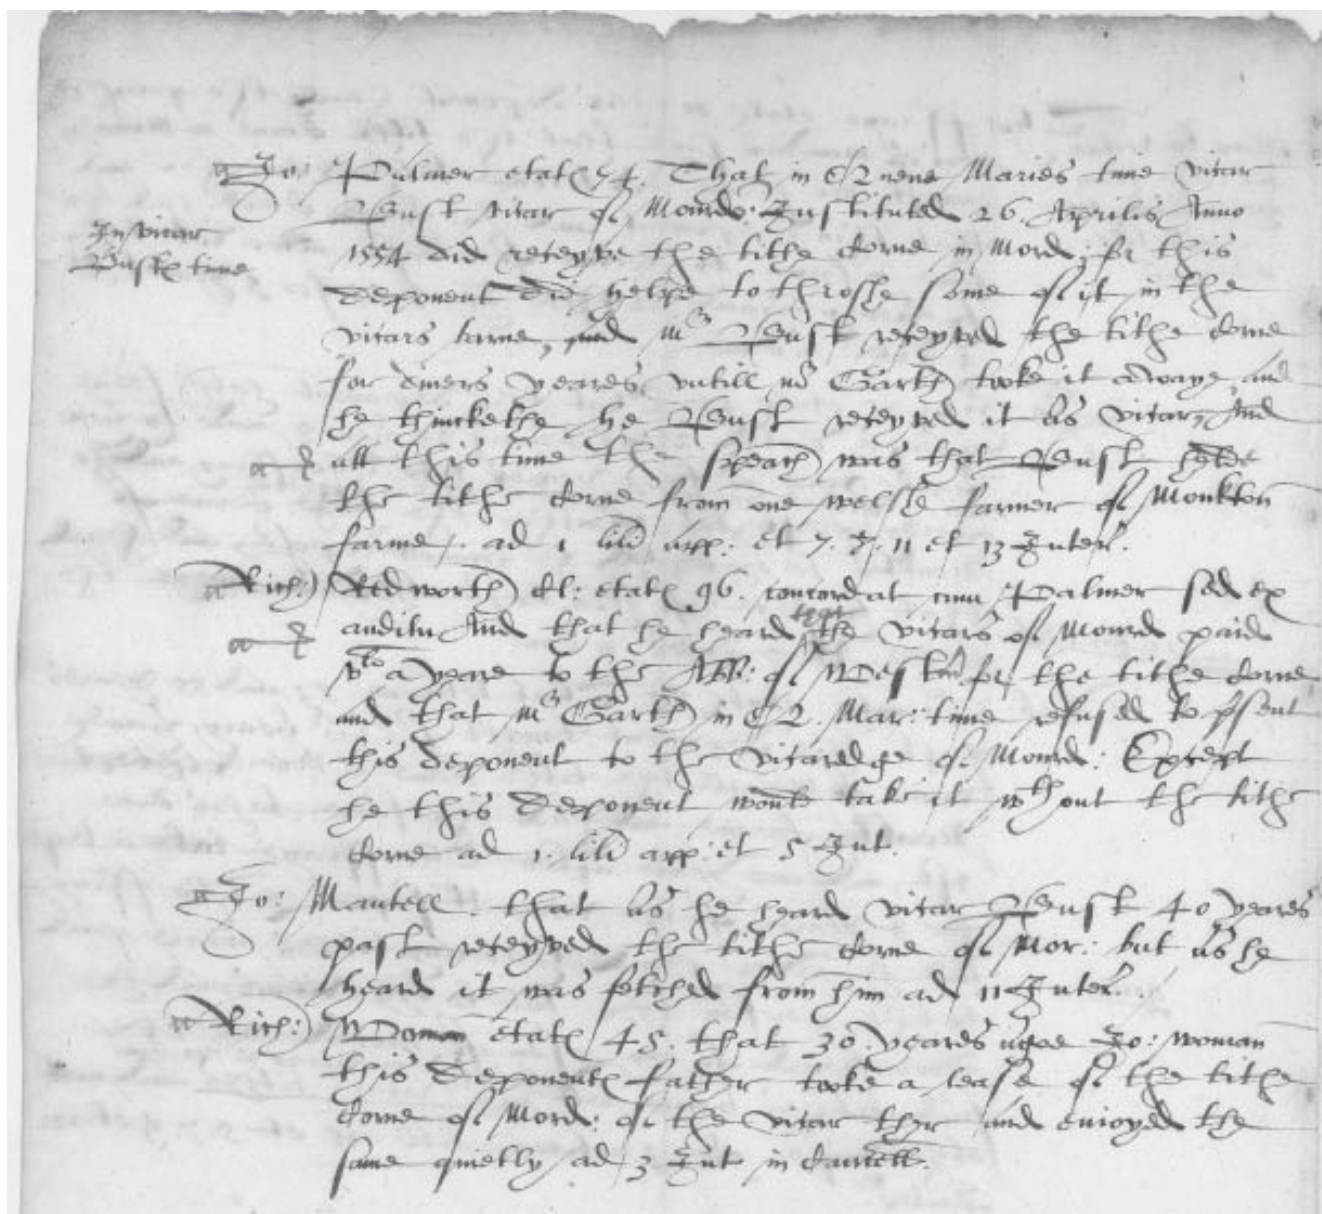 Jo: Palmer etat 74. That in Q uene Maries time vicar
Bust vicar of Mourdo: Instituted 26. Aprilis Anno
In vicar
Busts time
1554 did receyve the tithe Corne in Mord, for this
deponent did helpe to throshe some of it in the
vicars barne, and Mr Bust receyved the tithe Corne
for divers yeares vntill mr Garth tooke it awaye, and
he thinckethe he Bust receyved it as vicar, And
all this time the speach was that Bust helde
the tithe Corne from one welshe farmer of Monkton
farme. ad 1 lib arp: et 7. 11 et 13 Inter.
Rich: Redworth Cl: etat 96. concordat cum Palmer sed ex
auditu And that he heard that the vicars of Mourd paid
a yeare to the of Westm for the tithe Corne
and that Mr Garth in Q. Mar: time refused to psent
this deponent to the vicaredge of Mourd: Except
he this deponent would take it wthout the tithe
Corne ad 1. lib arp: et 5 Int.
Jo: Mantell. that as he heard vicar Bust 40 yeares
past receyved the tithe Corne of Mor: but as he
heard it was fetched from him ad 11 Inter.
Rich: Woman etat 45. that 30 yeares agoe Jo: woman
this deponents father tooke a lease of the tithe
Corne of Mord: of the vicar ther and enioyed the
same quietly ad 3 Int in